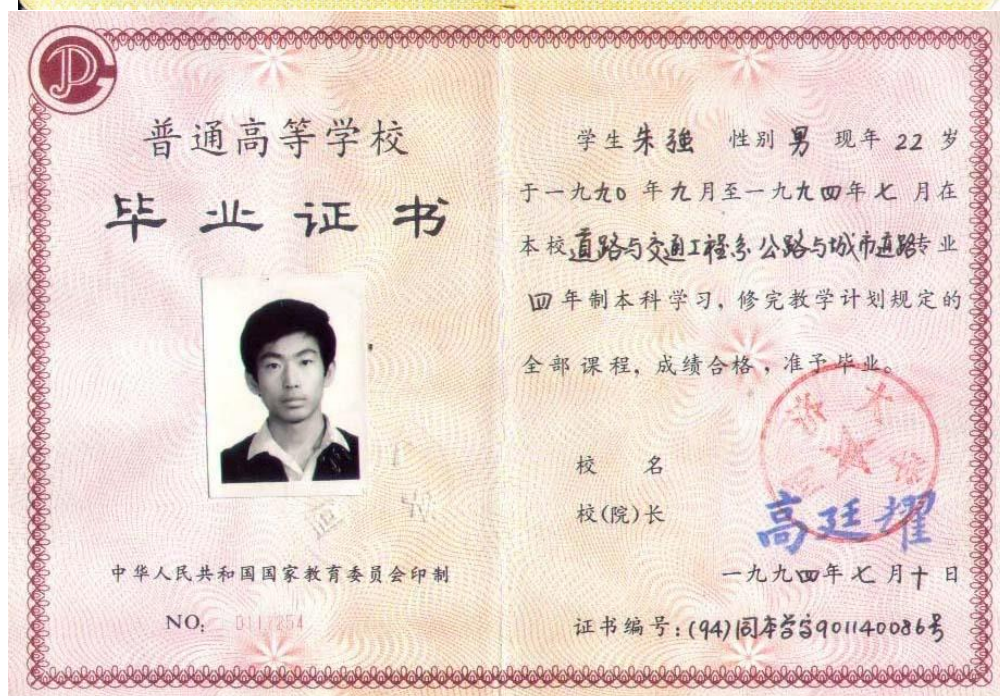 普通高等学校
毕业证书
中华人民共和国国家教育委员会印制
NO: 0117254
学生朱强 性别男 现年22岁
于一九九0年九月至一九九四年七月在
本校道路与交通工程系公路与城市道路专业
四年制本科学习，修完教学计划规定的
全部课程，成绩合格，准予毕业。
校 名
校(院)长
高廷耀
一九九四年七月十日
证书编号:(94)同本学字901140086号